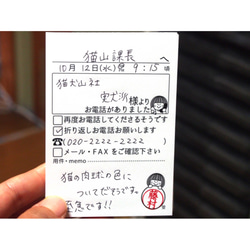 猫山課長 へ
10月12日(水) 9:15頃
猫犬山社
様より
お電話がありました
□再度お電話してくださるそうです
☑折り返しお電話お願いします
☎(020-2222-2222)
□メール・FAXをご確認下さい
用件・memo
猫の肉球の色に
ついてだそうです。
至急です!!
藤村